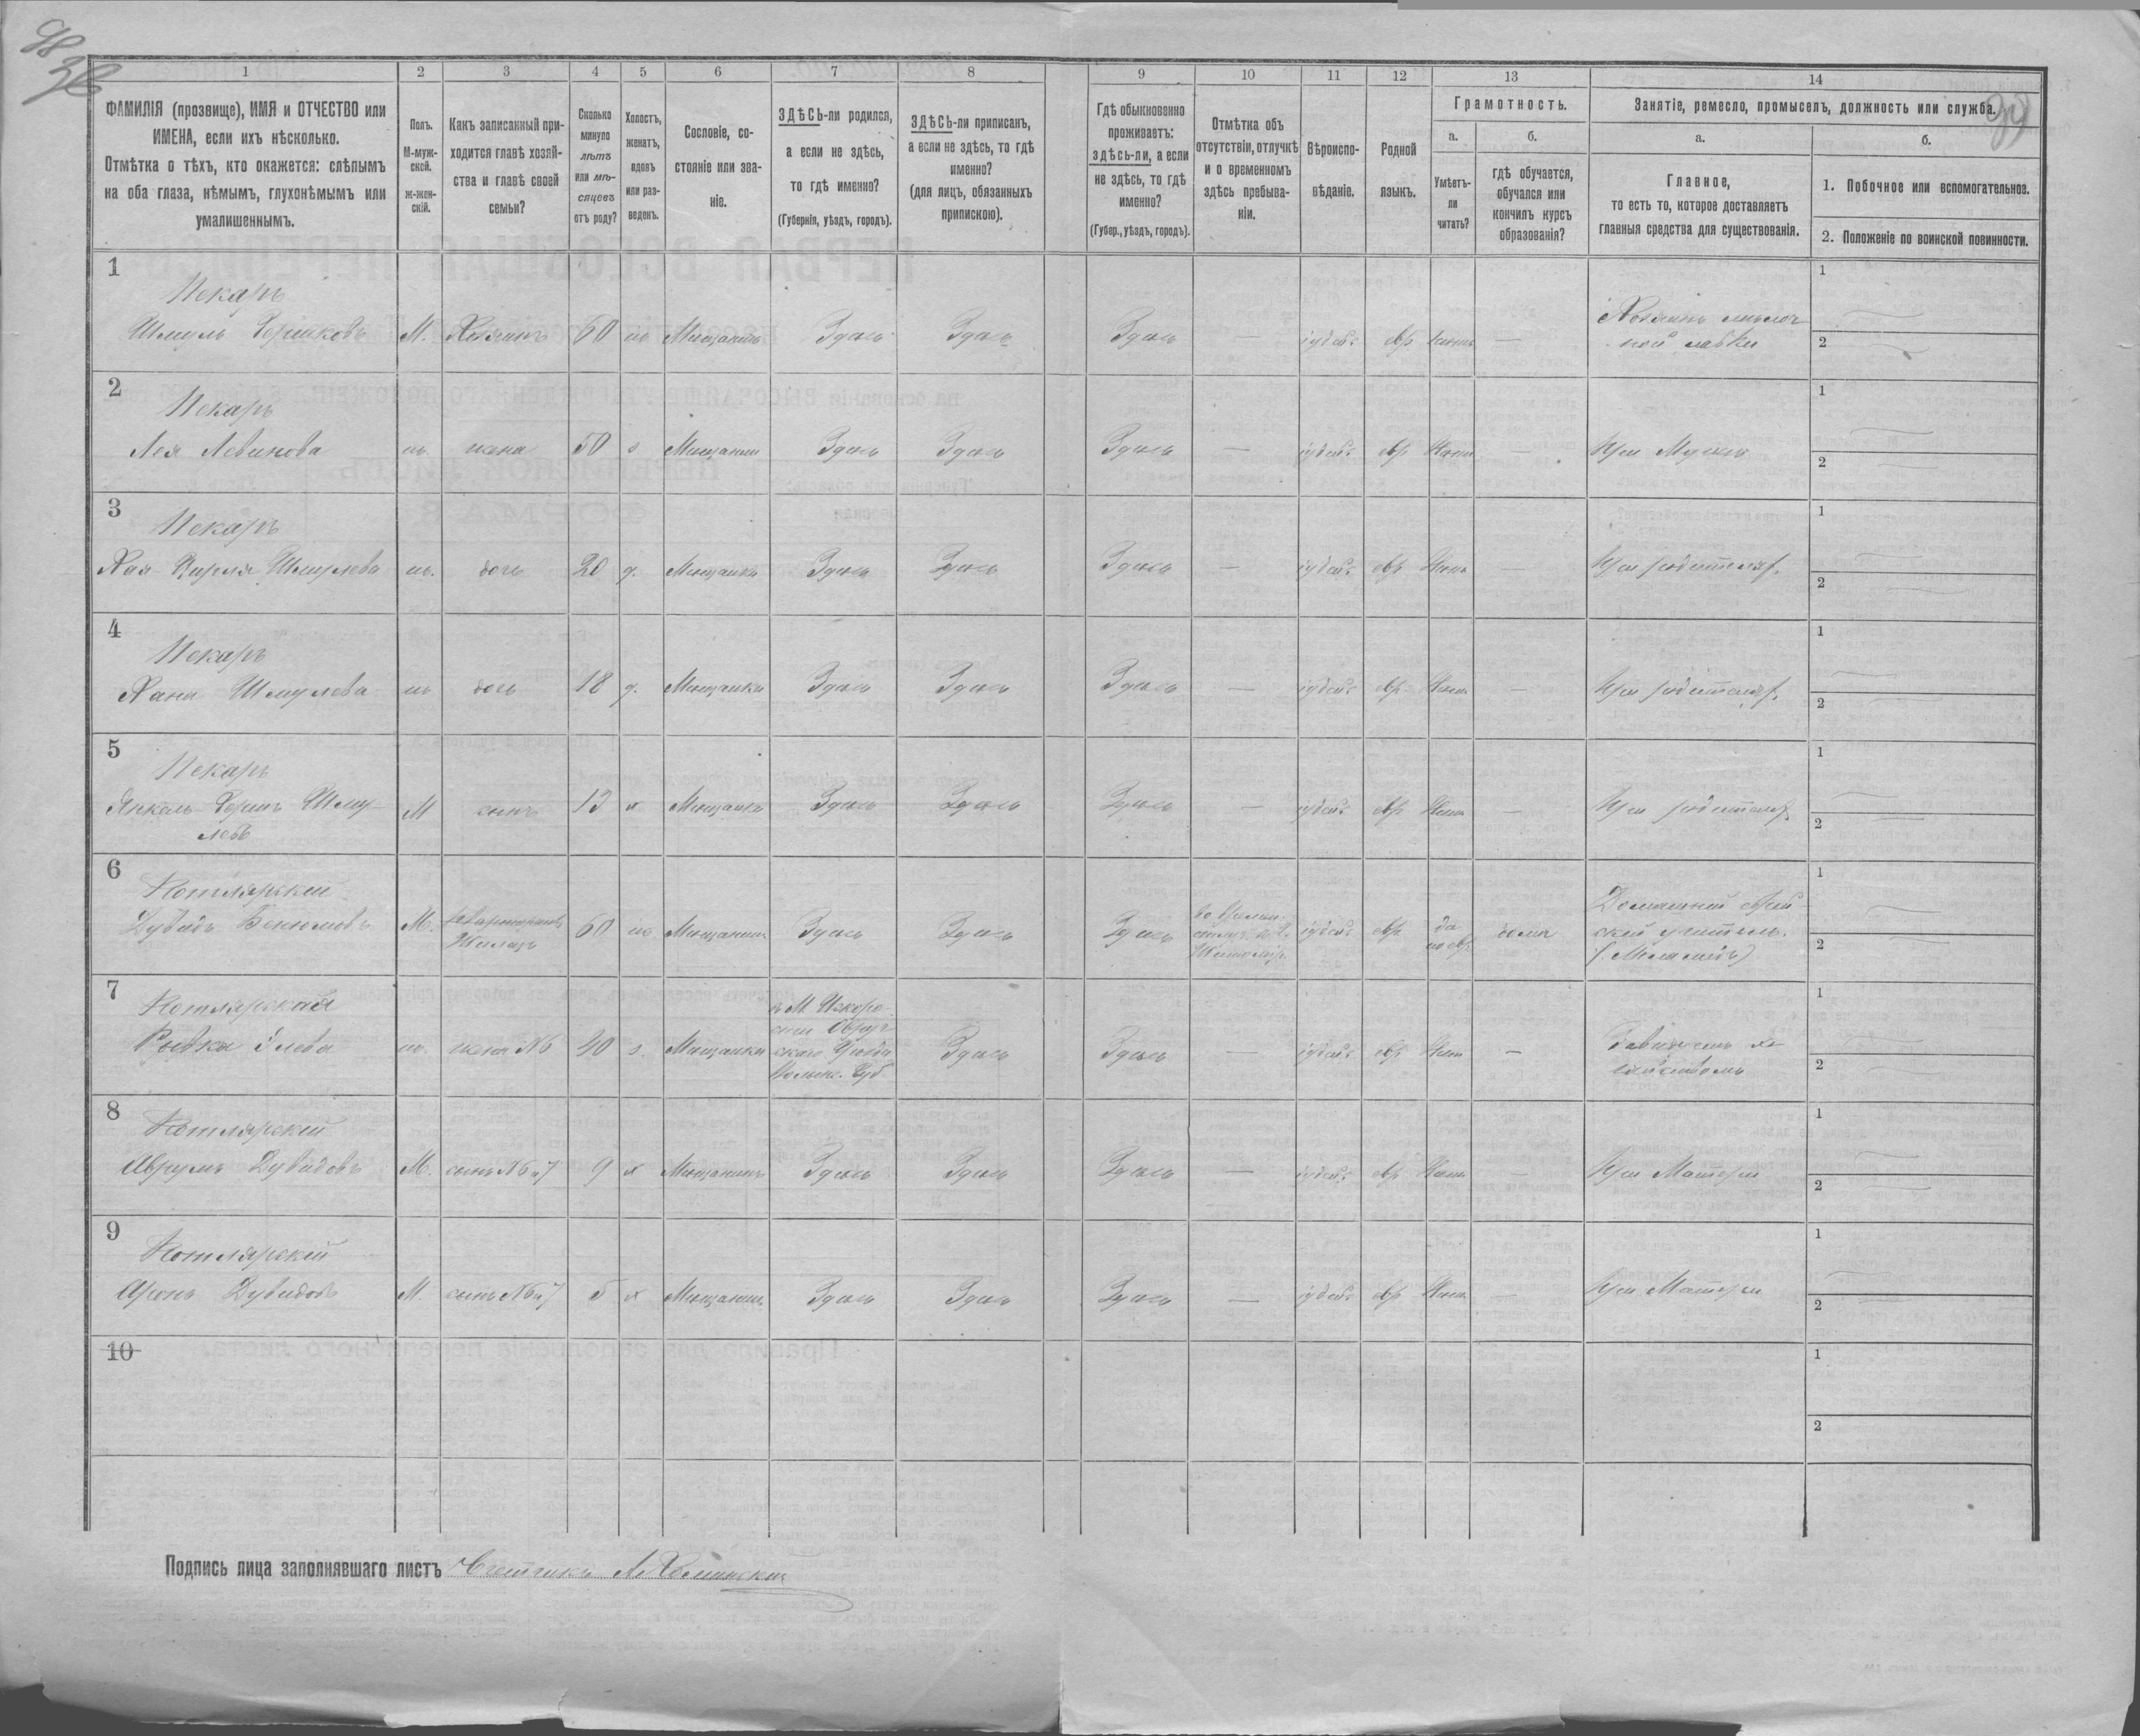 98
38
99
1 2 3 4 5 6 7 8 9 10 11 12 13 14
ФАМИЛІЯ (прозвище), ИМЯ и ОТЧЕСТВО или
ИМЕНА, если ихъ нѣсколько.
Отмѣтка о тѣхъ, кто окажется: слѣпымъ
на оба глаза, нѣмымъ, глухонѣмымъ или
умалишеннымъ.
Полъ.
М-муж-
ской.
ж-жен-
скій.
Какъ записанный при-
ходится главѣ хозяй-
ства и главѣ своей
семьи?
Сколько
минуло
лѣтъ
или мѣ-
сяцевъ
отъ роду?
Холостъ,
женатъ,
вдовъ
или раз-
веденъ.
Сословіе, со-
стояніе или зва-
ніе.
ЗДѢСЬ-ли родился,
а если не здѣсь,
то гдѣ именно?
(Губернія, уѣздъ, городъ).
ЗДѢСЬ-ли приписанъ,
а если не здѣсь, то гдѣ
именно?
(для лицъ, обязанныхъ
припискою).
Гдѣ обыкновенно
проживаетъ:
здѣсь-ли, а если
не здѣсь, то гдѣ
именно?
(Губер., уѣздъ, городъ).
Отмѣтка объ
отсутствіи, отлучкѣ
и о временномъ
здѣсь пребыва-
ніи.
Вѣроиспо-
вѣданіе.
Родной
языкъ.
Грамотность.
а.
Умѣетъ-
ли
читать?
б.
гдѣ обучается,
обучался или
кончилъ курсъ
образованія?
Занятіе, ремесло, промыселъ, должность или служба.
а.
Главное,
то есть то, которое доставляетъ
главныя средства для существованія.
б.
1. Побочное или вспомогательное.
2. Положеніе по воинской повинности.
1
Пекарь
Шмуль Гершковъ М. Хозяинъ 60 ж Мѣщанинъ Здѣсь Здѣсь Здѣсь — іудей. евр Нѣтъ —
Хозяинъ мелоч
ной лавки
1
2
2
Пекарь
Лея Левикова ж. жена 50 з Мѣщанка Здѣсь Здѣсь Здѣсь — іудей. евр Нѣтъ — При Мужѣ
1
2
3
Пекарь
Хая Шмулева ж. дочь 20 д. Мѣщанка Здѣсь Здѣсь Здѣсь — іудей. евр Нѣтъ — При родителях.
1
2
4
Пекарь
Хана Шмулева ж дочь 18 д. Мѣщанка Здѣсь Здѣсь Здѣсь — іудей. евр Нѣтъ — При родителях.
1
2
5
Пекарь
Янкель Гершъ Шму-
левъ
М сынъ 13 х Мѣщанинъ Здѣсь Здѣсь Здѣсь — іудей. евр Нѣтъ — При родителях
1
2
6
Котлярский
Дувидъ М. Квартирантъ
Жилецъ
60 ж Мѣщанинъ Здѣсь Здѣсь Здѣсь
Житомір.
іудей. евр.
да
по евр.
дома
Домашний еврей
ский учитель.
(Меламедъ)
1
2
7
Котлярская
Ривка ж. жена №6 40 з. Мѣщанка
в М. Искоро-
сти Овруч
скаго Уѣзда
Волынс. Губ
Здѣсь Здѣсь — іудей. евр Нѣтъ —
Завѣдуетъ хо
зяйствомъ
1
2
8
Котлярский
Аврумъ Дувидовъ М. сынъ №6 и 7 9 х Мѣщанинъ Здѣсь Здѣсь Здѣсь — іудей. евр Нѣтъ — При Матери
1
2
9
Котлярский
Аронъ Дувидовъ М. сынъ №6 и 7 5 х Мѣщанинъ Здѣсь Здѣсь Здѣсь — іудей. евр Нѣтъ — При Матери
1
2
10
1
2
Подпись лица заполнявшаго листъ Счетчикъ